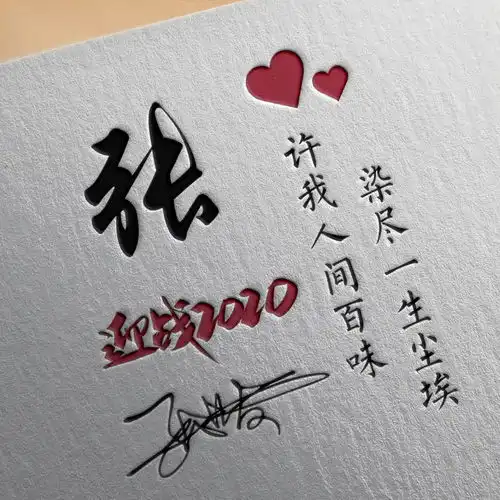 张
迎战2020
染尽一生尘埃
许我人间百味